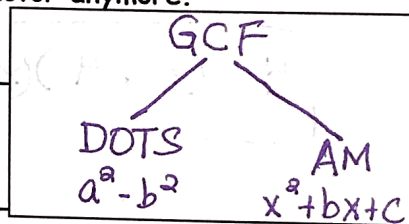 anymore.
GCF
DOTS AM
a² - b² x² + bx + c